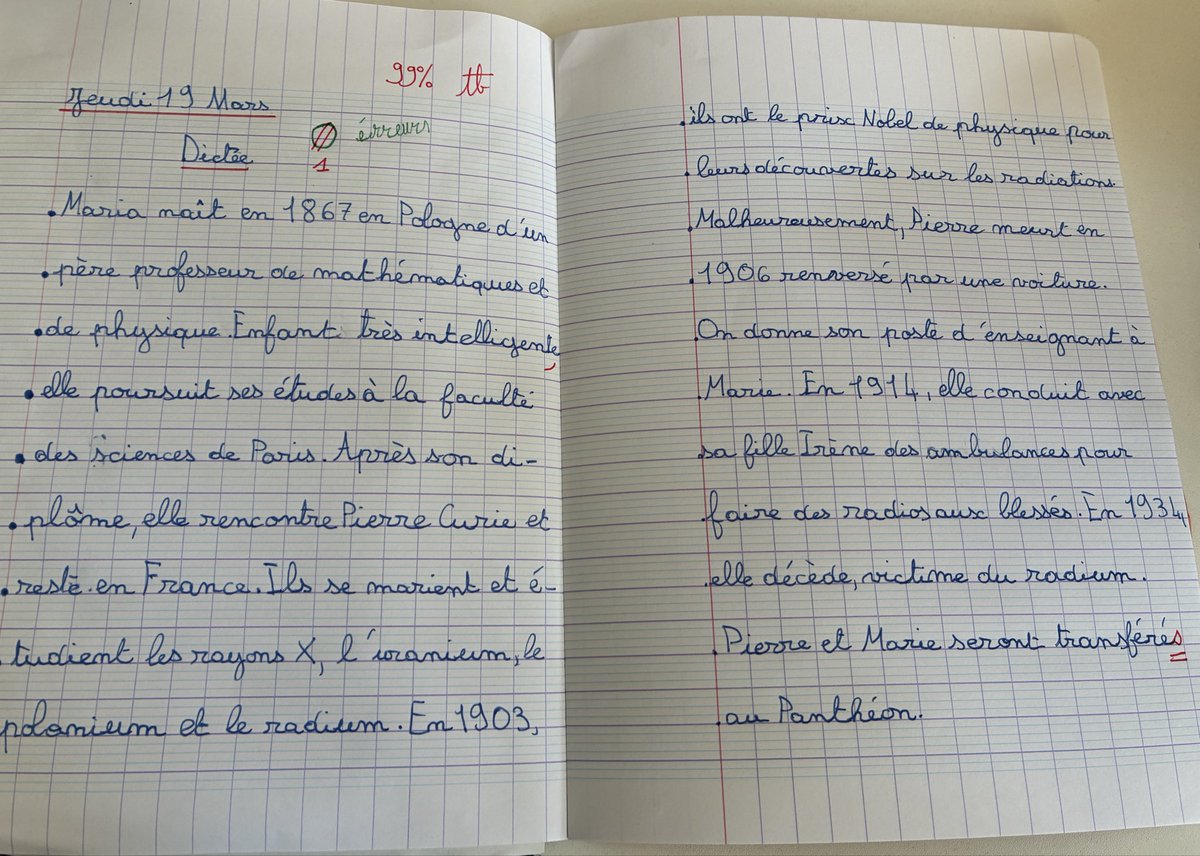 99% tb
Jeudi 19 Mars
0 érreurs
Dictée
1
Maria naît en 1867 en Pologne d'un
père professeur de mathématiques et
de physique. Enfant très intelligente,
elle poursuit ses études à la faculté
des sciences de Paris. Après son di-
plôme, elle rencontre Pierre Curie et
reste en France. Ils se marient et é-
tudient les rayons X, l'uranium, le
polonium et le radium. En 1903,
ils ont le prix Nobel de physique pour
leurs découvertes sur les radiations.
Malheureusement, Pierre meurt en
1906 renversé par une voiture.
On donne son poste d'enseignant à
Marie. En 1914, elle conduit avec
sa fille Irène des ambulances pour
faire des radios aux blessés. En 1934,
elle décède, victime du radium.
Pierre et Marie seront transférés
au Panthéon.